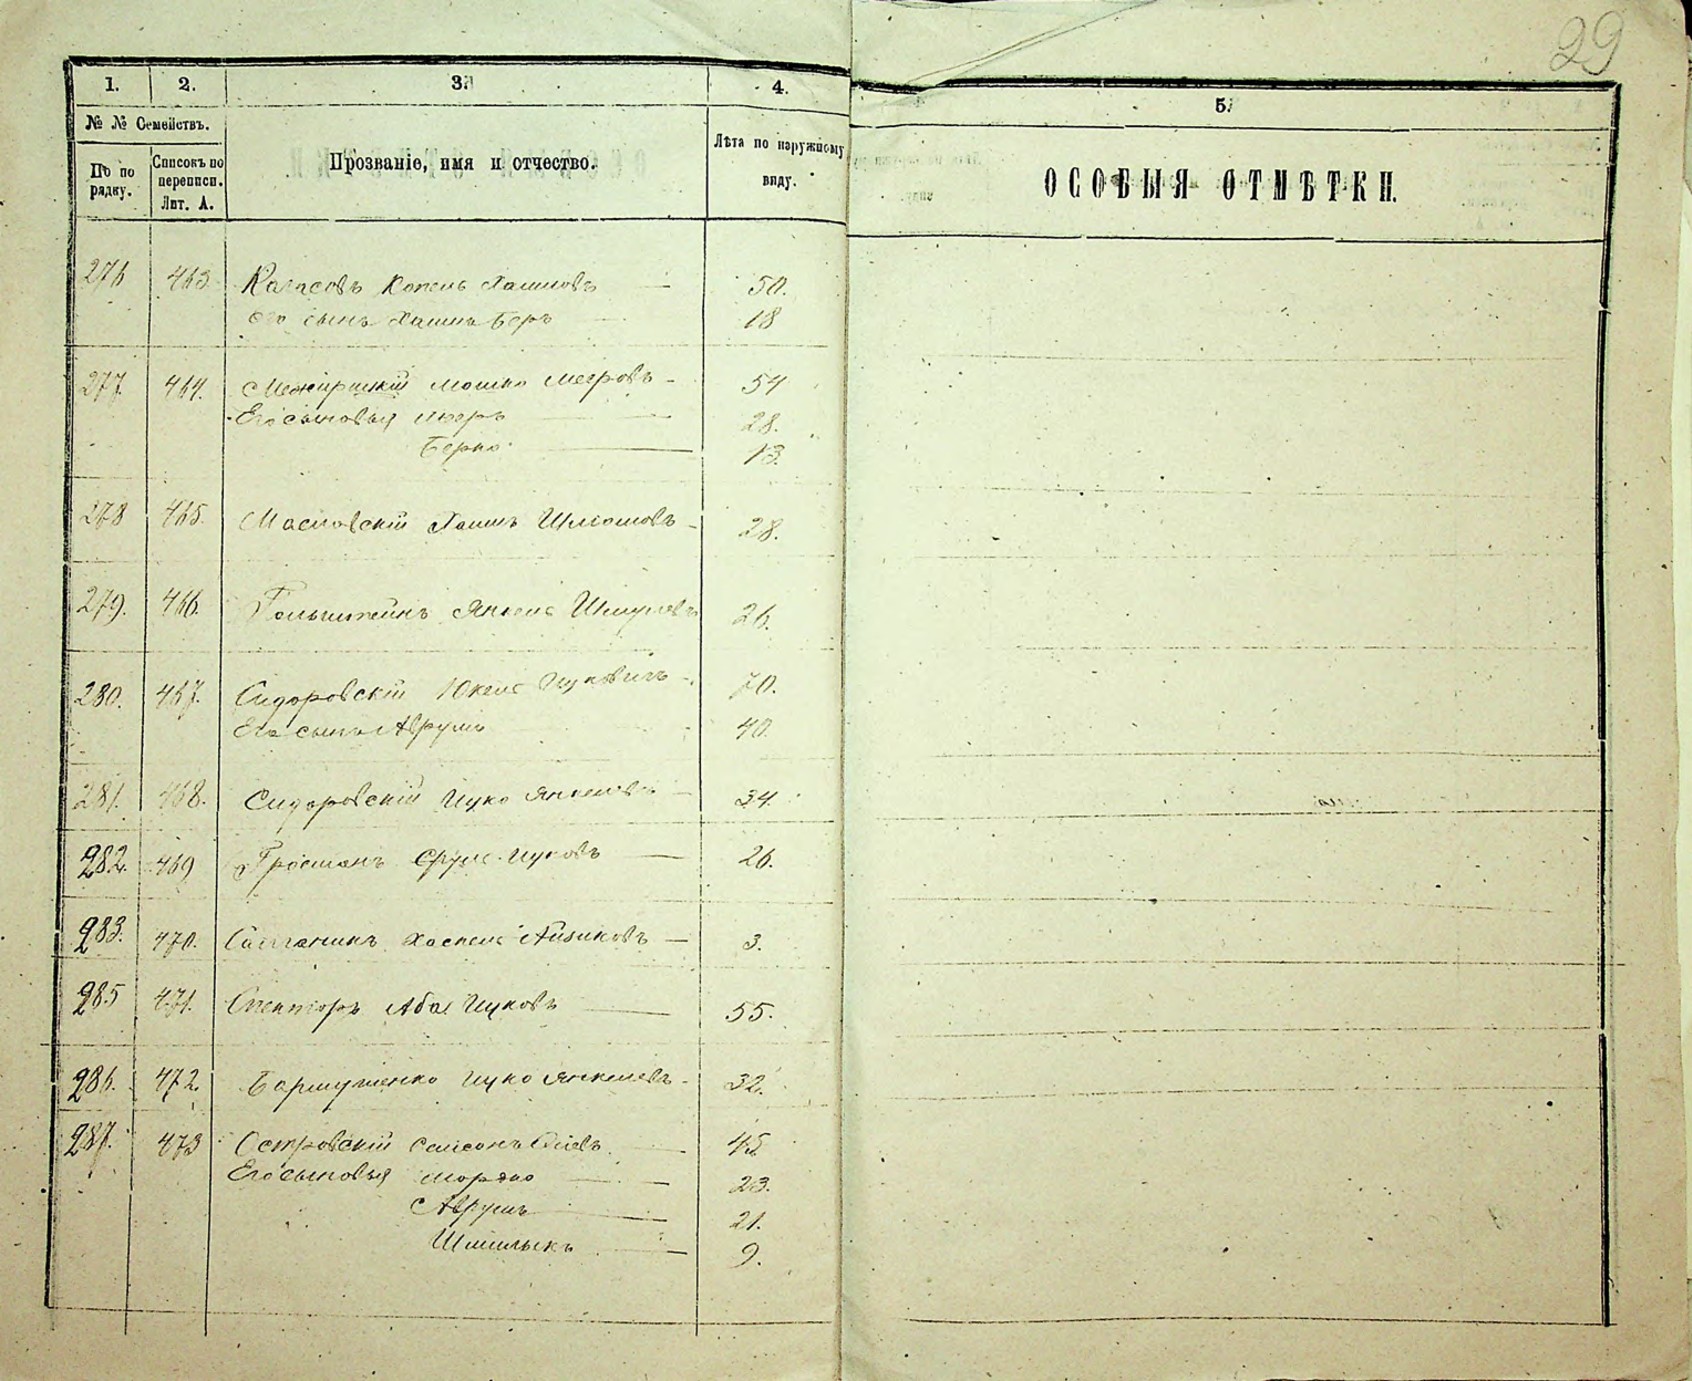 29
1. 2. 3. 4. 5.
№ № Семействъ.
По порядку. Списокъ по переписи. Лит. А. Прозваніе, имя и отчество. Лѣта по наружному виду. ОСОБЫЯ ОТМѢТКИ.
276 463. Копель Хаимовъ — 50.
его сынъ Хаимъ Беръ — 18
277. 464. Межирицкій Мошко — 54
Его сыновья — 28.
Берко — 13.
278 465. Масловскій Хаимъ Шліомовъ — 28.
279. 466. Гольштейнъ Янкель Шмулевъ 26.
280. 467. Сидоровскій Юкель Ицковичъ — 70.
Его сынъ Аврумъ 40.
281. 468. Сидоровскій Ицко Янкелевъ — 34.
282. 469 Сруль Ицковъ — 26.
283. 470. Хаскель Айзиковъ — 3.
285 471. Спекторъ Аба Ицковъ — 55.
286. 472. Ицко Янкелевъ — 32.
287. 473 Островскій Самсонъ — 45
Его сыновья Мордко — 23.
Аврумъ — 21.
Шмилыкъ — 9.